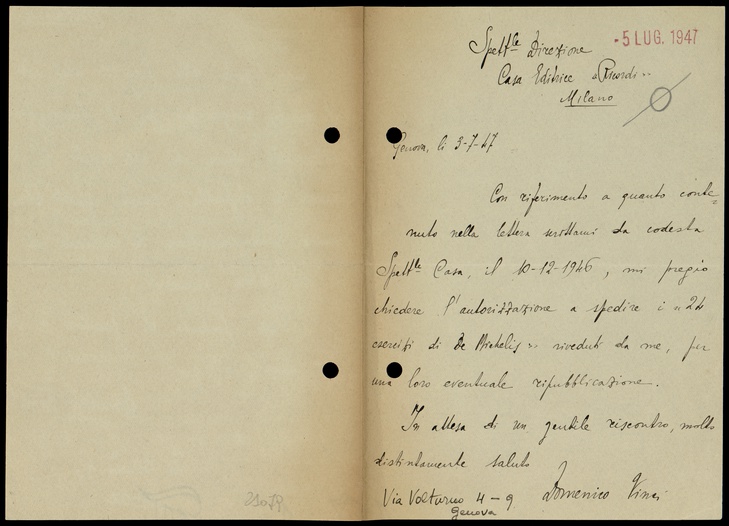 - 5 LUG. 1947
Spettle Direzione
Casa Editrice "Ricordi"
Milano
Genova, li 3-7-47
Con riferimento a quanto conte=
nuto nella lettera scrittami da codesta
Spettle Casa, il 10-12-1946, mi pregio
chiedere l'autorizzazione a spedire i "24
esercizi di De Michelis" riveduti da me, per
una loro eventuale ripubblicazione.
In attesa di un gentile riscontro, molto
distintamente saluto
Domenico Vinci
Via Volturno 4-9
Genova